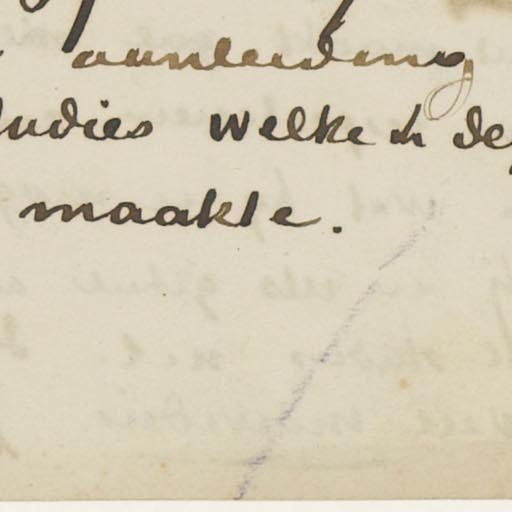 aanleiding
tudies welke ik de
maakte.